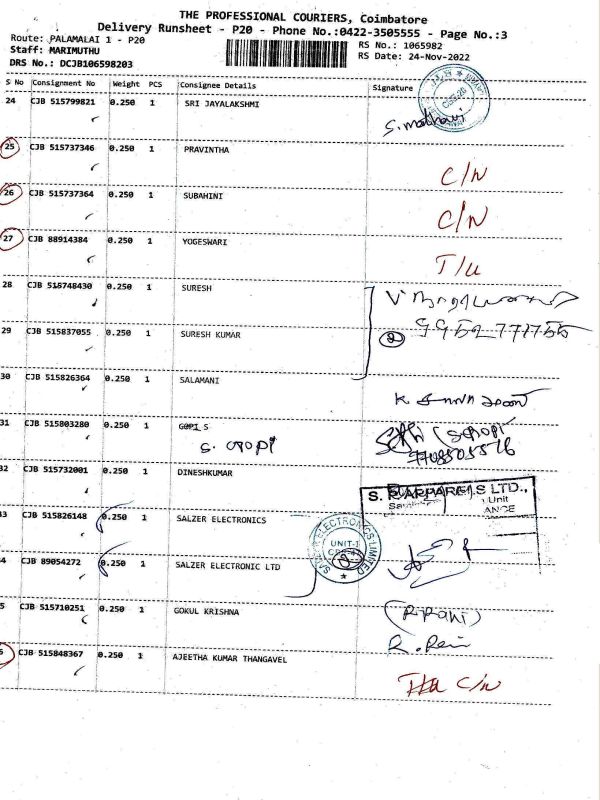 THE PROFESSIONAL COURIERS, Coimbatore
Delivery Runsheet - P20 - Phone No.:0422-3505555 - Page No.:3
Route: PALAMALAI 1 - P20
RS No.: 1065982
Staff: MARIMUTHU
RS Date: 24-Nov-2022
DRS No.: DCJB106598203
S No Consignment No Weight PCS Consignee Details Signature
24 CJB 515799821 0.250 1 SRI JAYALAKSHMI
25 CJB 515737346 0.250 1 PRAVINTHA C/N
26 CJB 515737364 0.250 1 SUBAHINI C/N
27 CJB 88914384 0.250 1 YOGESWARI T/U
28 CJB 515748430 0.250 1 SURESH
29 CJB 515837055 0.250 1 SURESH KUMAR 2
30 CJB 515826364 0.250 1 SALAMANI
31 CJB 515803280 0.250 1 GOPI S
S. Gopi
32 CJB 515732001 0.250 1 DINESHKUMAR
S. APPARELS LTD.,
Unit
33 CJB 515826148 0.250 1 SALZER ELECTRONICS
SALZER ELECTRONICS LIMITED
UNIT-1
34 CJB 89054272 0.250 1 SALZER ELECTRONIC LTD
35 CJB 515710251 0.250 1 GOKUL KRISHNA
36 CJB 515848367 0.250 1 AJEETHA KUMAR THANGAVEL C/N